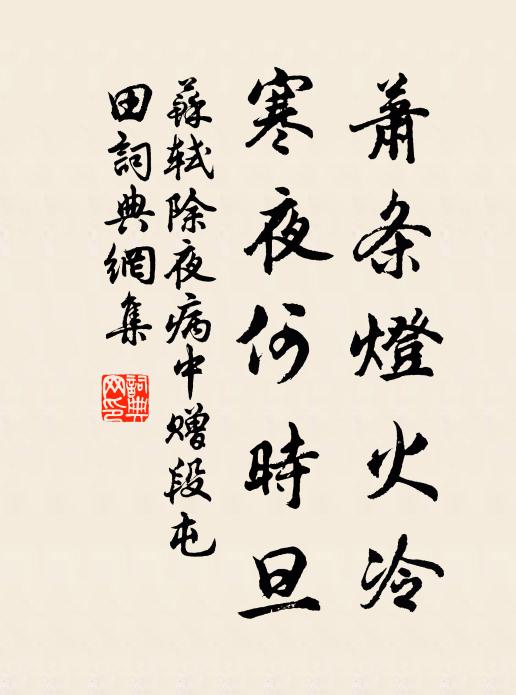 蕭条燈火冷
寒夜何時旦
蘇軾除夜病中贈段屯
田詞典網集
詞典
网印